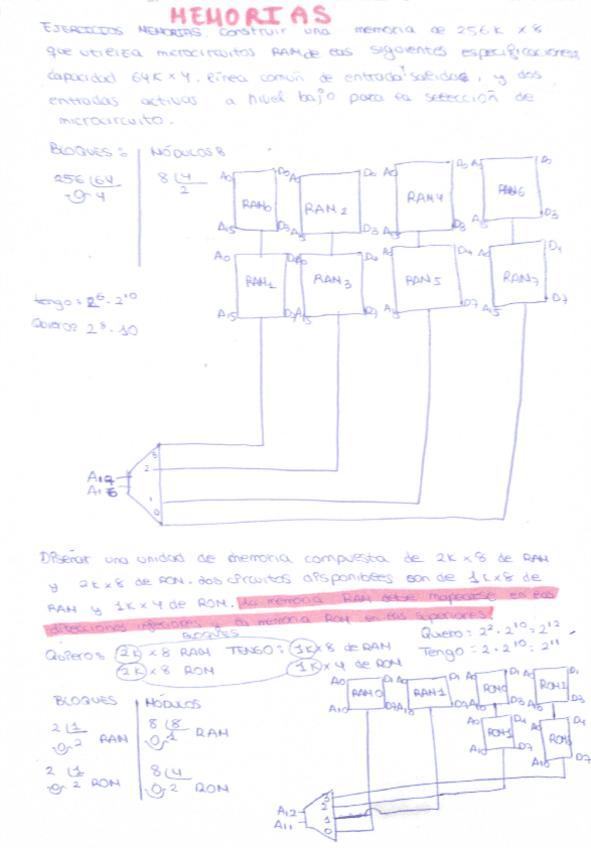 MEMORIAS
EJERCICIOS MEMORIAS. Construir una memoria de 256K x8
que utiliza microcircuitos RAM de las siguientes especificaciones,
capacidad 64K x 4, línea común de entrada salidas, y dos
entradas activas a nivel bajo para la selección de
microcircuito.
BLOQUES: MÓDULOS 8
256 64
0 4
8 4
2
A0 D0 A0 D0 A0 D0 A0 D0
RAM0 RAM2 RAM4 RAM6
A15 D3 A15 D3 A15 D3 D3
A0 D4 D4 A0 D4
RAM1 RAM3 RAM5 RAM7
A15 D7 A15 D7 A15 D7 D7
tengo: 2^6 · 2^10
Quiero: 2^8 · 10
3
2
1
0
A17
A16
Diseñar una unidad de memoria compuesta de 2K x 8 de RAM
y 2K x 8 de ROM. Los circuitos disponibles son de 1K x 8 de
RAM y 1K x 4 de ROM. La memoria RAM debe mapearse en las
direcciones inferiores y la memoria ROM en las superiores.
BLOQUES
Quiero: 2K x 8 RAM TENGO: 1K x 8 de RAM
2K x 8 ROM 1K x 4 de ROM
Quero = 2^2 · 2^10 = 2^12
Tengo = 2 · 2^10 = 2^11
BLOQUES MÓDULOS
2 1
0 2 RAM
8 8
0 1 RAM
2 1
0 2 ROM
8 4
0 2 ROM
A0 D1 A0 D1 A0 D1 D1
RAM0 RAM1 ROM0 ROM2
A10 D7 A10 D7 A10 D3 D3
A0 D4 D4
ROM1 ROM3
D7 A10 D7
3
2
1
0
A12
A11